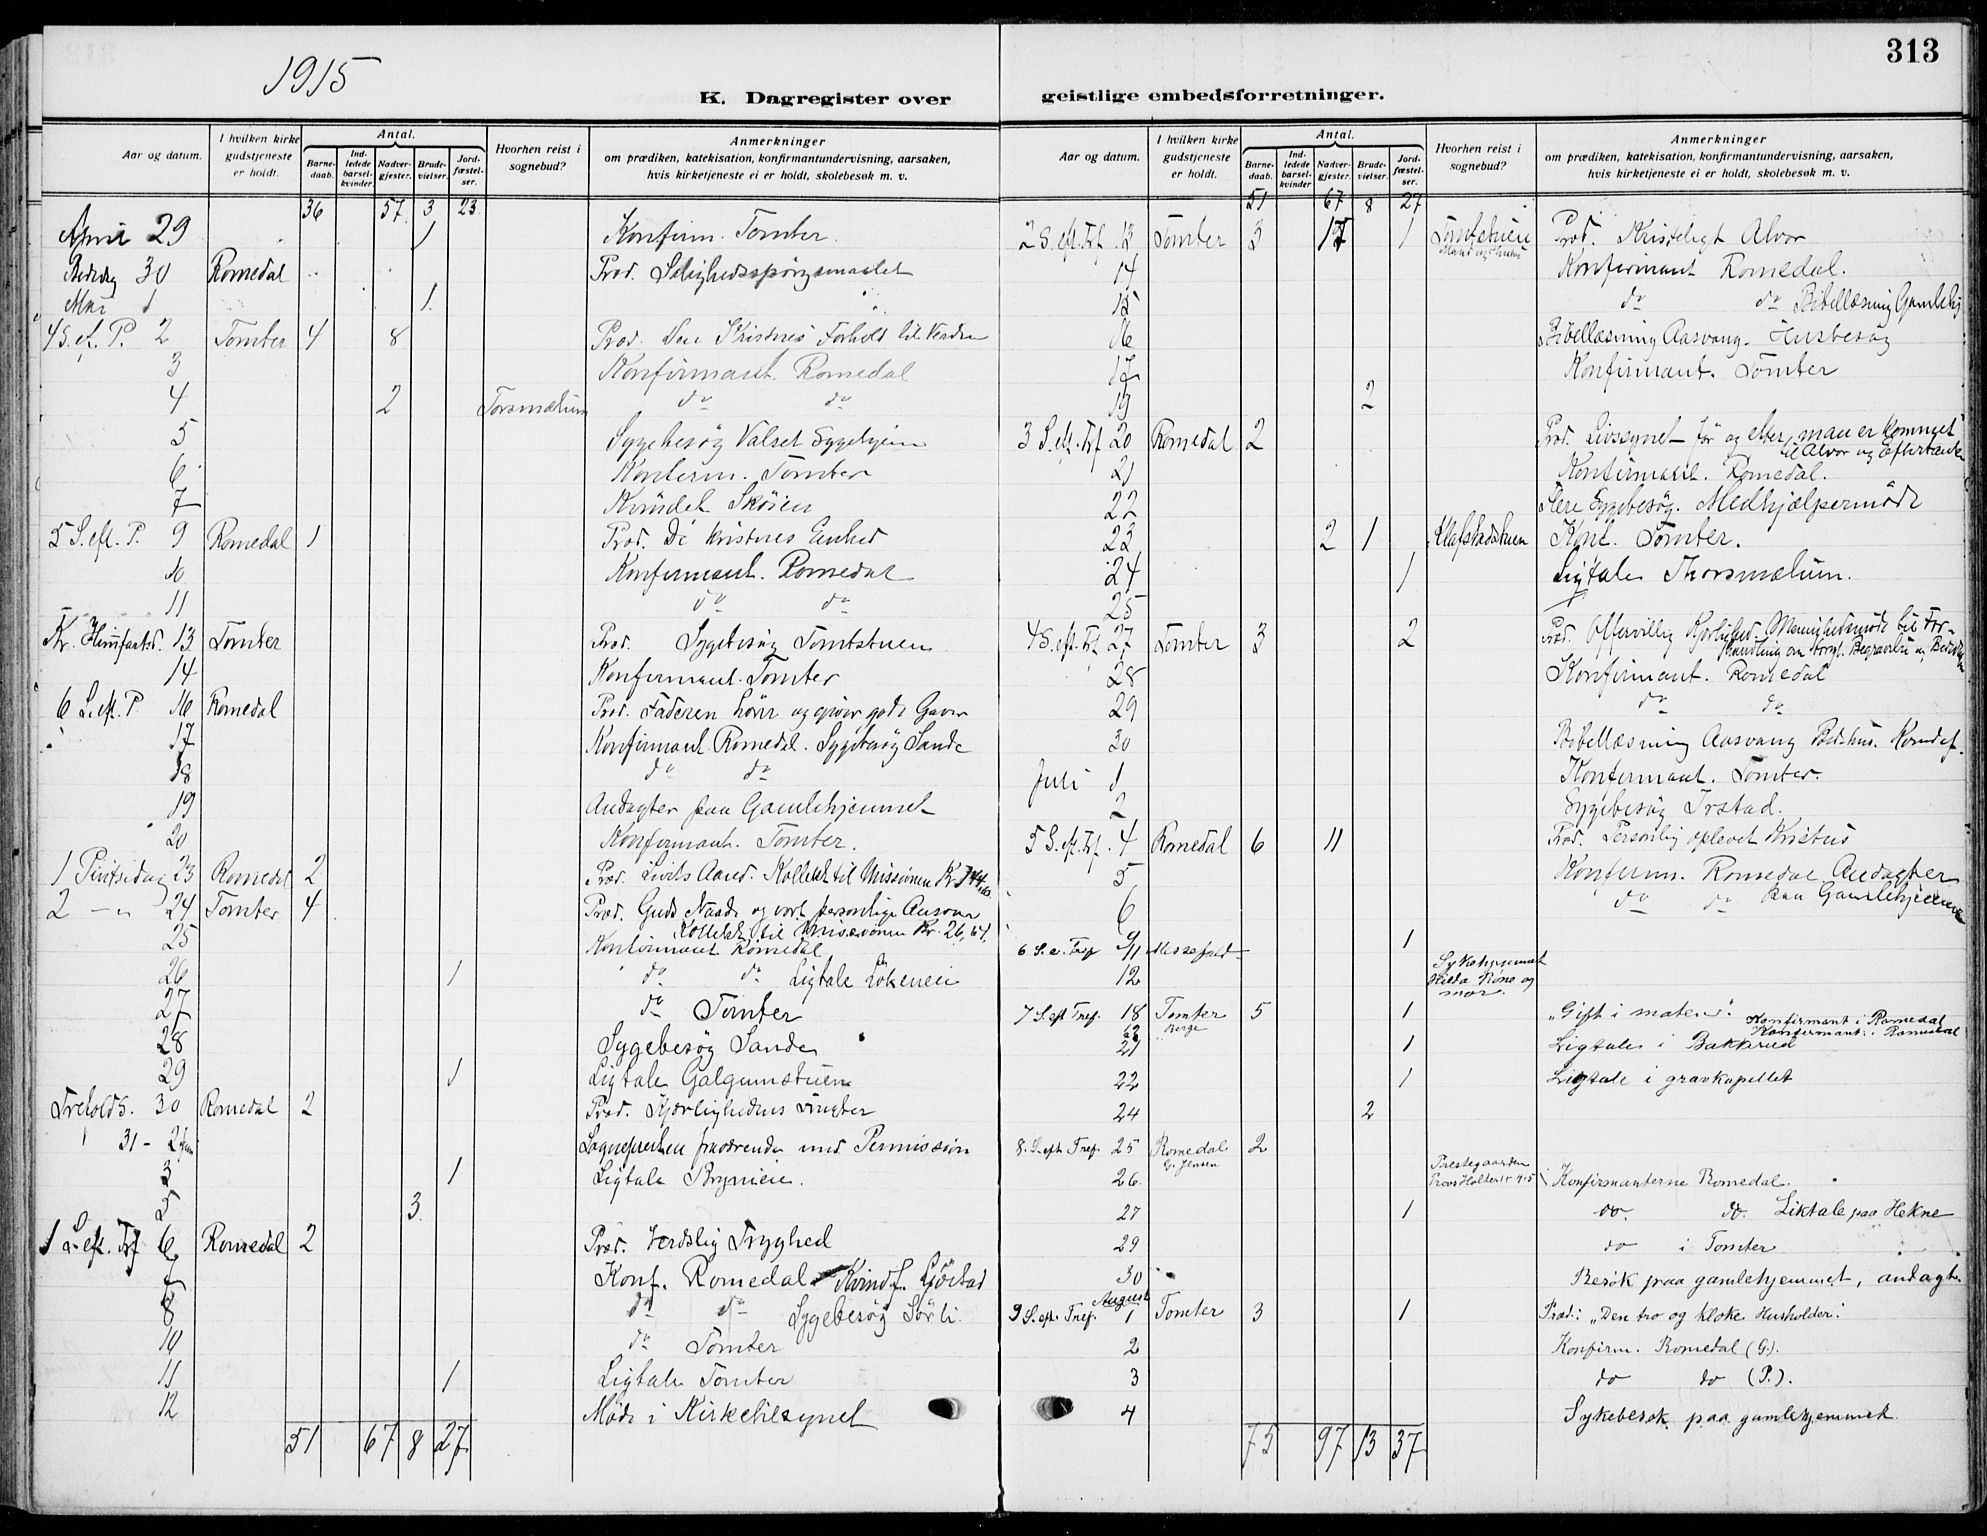 313
1915
K. Dagregister over geistlige embedsforretninger.
Aar og datum. I hvilken kirke gudstjeneste er holdt. Antal. Barnedaab. Indledede barselkvinder. Nadvergjester. Brudevielser. Jordfæstelser. Hvorhen reist i sognebud? Anmerkninger om prædiken, katekisation, konfirmantundervisning, aarsaken, hvis kirketjeneste ei er holdt, skolebesøk m. v.
36 57 3 23
April 29 1 Konfirm. Tomter.
Bededag 30 Romedal Præd. Salighedsspørgsmaalet
Mai 1 1.
4 S. ef. P. 2 Tomter 4 8 Præd. Den Kristnes Forhold til Verden
3 Konfirmant. Romedal
4 2 Torsmælum do do
5 Sygebesøg Valset Sygehjem
6 Konfirm. Tomter
7 Kvindef. Skøien
5 S. eft. P. 9 Romedal 1 Præd. De kristnes Enhed
10 Konfirmant. Romedal
11 do do
Kr. Himfartsd. 13 Tomter Præd. Sygebesøg Tomtstuen
14 Konfirmant. Tomter
6 S. eft. P. 16 Romedal Præd. Faderen hører og giver gode Gaver
17 Konfirmant. Romedal. Sygebesøg Sande
18 do do
19 Andagter paa Gamlehjemmet
20 Konfirmant. Tomter.
1 Pintsedag 23 Romedal 2 Præd. Livets Aand. Kollekt til Missionen Kr.
2 — " 24 Tomter 4 Præd. Guds Naade og vort personlige Ansvar
Kollekt til Missionen Kr. 26,64.
25 Konfirmant Romedal
26 1 do do Ligtale Løkeneie
27 do Tomter
28 Sygebesøg Sande
29 1 Ligtale Galgumstuen
Trefolds. 30 Romedal 2 Præd. Kjærlighedens Frugter
31 - 2 Juni Sognepresten fraværende med Permission
3 1 Ligtale Brynieie.
5 3.
1 S. eft. Trf 6 Romedal 2 Præd. Verdslig Tryghed
7 Konf. Romedal. Kvindf. Gjøstad
8 do do Sygebesøg Sørli.
10 do Tomter
11 1 Ligtale Tomter
12 Møde i Kirketilsynet
51 67 8 27
Aar og datum. I hvilken kirke gudstjeneste er holdt. Antal. Barnedaab. Indledede barselkvinder Nadvergjester. Brudevielser. Jordfæstelser. Hvorhen reist i sognebud? Anmerkninger om prædiken, katekisation, konfirmantundervisning, aarsaken, hvis kirketjeneste ei er holdt, skolebesøk m. v.
51 67 8 27
2 S. eft. Trf. 13 Tomter 3 17 1 Tomtstuen Præd. Kristeligt Alvor
Mand og Hustru
14 Konfirmant Romedal.
15 do do Bibellæsning Gamlehj
16 Bibellæsning Aasvang. Husbesøg
17 Konfirmant. Tomter
19 2
3 S. eft. Trf 20 Romedal 2 Præd. Livssynet før og efter, man er kommet
til Alvor og Eftertanke
21 Konfirmant. Romedal.
22 Flere Sygebesøg. Medhjælpermøde
23 2 1 Klafstadstuen Konf. Tomter.
24 1 Ligtale Thorsmælum.
25
4 S. eft. Trf. 27 Tomter 3 2 Præd. Offervillig Kjærlighed. Menighedsmøde til For-
handling om borgl. Begravelse og
28 Konfirmant. Romedal
29 do do
30 Bibellæsning Aasvang Bedehus. Kvindef.
Juli 1 Konfirmant. Tomter.
2 Sygebesøg Irstad.
5 S. eft. Trf. 4 Romedal 6 11 Præd. Personlig oplevet Kristus
5 Konfirm. Romedal Andagter
6 do do paa Gamlehjemme
9 1
6 S. e. Tref 11 Messefald
12 Sykehjemmet Hilda Røne og mor.
7 S. eft Tref. 18 Tomter 5 1 "Gift i maten". Konfirmant i Romedal
Berge Konfirmant i Romedal
21 1 Ligtale i Bakkerud
22 1 Ligtale i gravkapellet
24 2
8. S. eft Tref. 25 Romedal 2
G. Jensen
26. Prestegaarden Provs Holter Konfirmanterne Romedal.
27 1 do. do. Liktale paa Hekne
29 do i Tomter
30 Besøk paa gamlehjemmet, andagt.
August
9 S. eft. Tref. 1 Tomter 3 1 Præd: "Den tro og kloke Husholder".
2 Konfirm. Romedal (G).
3 do do (P.).
4 Sykebesøk paa gamlehjemmet.
75 97 13 37